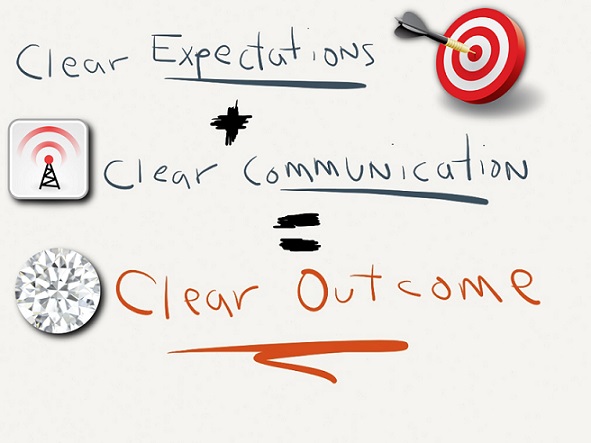 Clear Expectations
+
Clear Communication
=
Clear Outcome